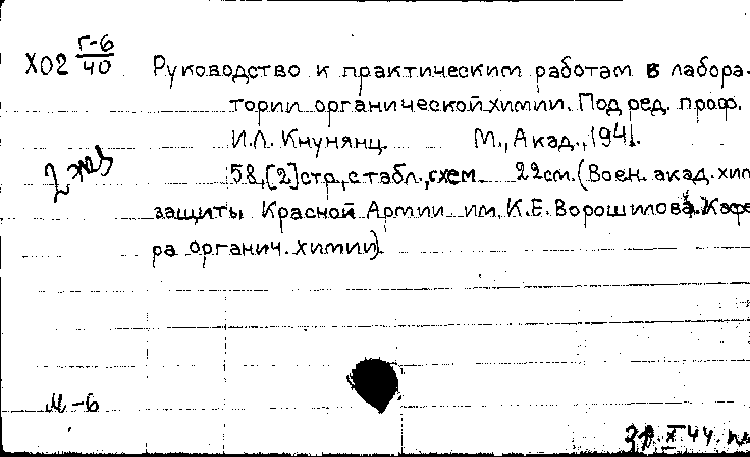 Х02 Г-6/40
Руководство к практическим работам в лабора-
тории органической химии. Под ред. проф.
И.Л. Кнунянц. М., Акад., 1941.
58,[2]стр, с табл., схем. 22см. (Воен. акад. хим
защиты Красной Армии им. К.Е. Ворошилова. Кафе
ра органич. химии).
2 экз
М-6
31.X 44.